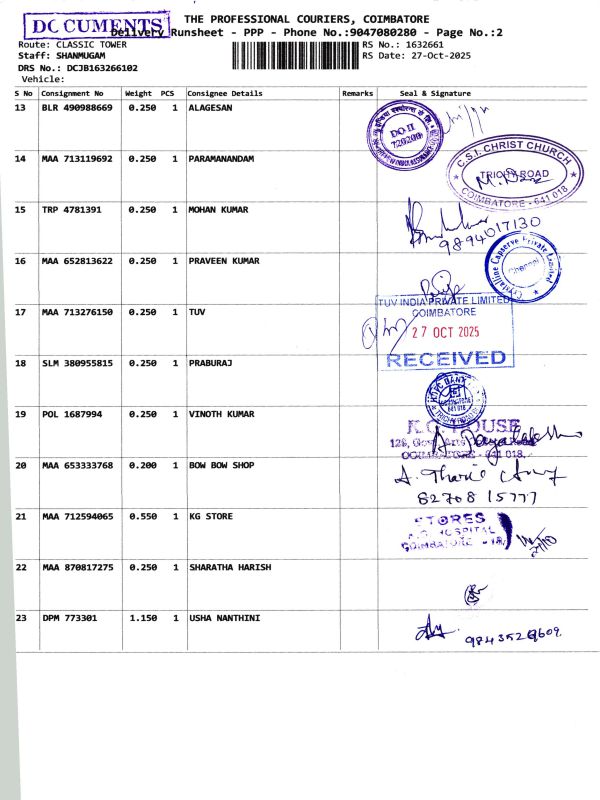 DOCUMENTS
THE PROFESSIONAL COURIERS, COIMBATORE
Delivery Runsheet - PPP - Phone No.:9047080280 - Page No.:2
Route: CLASSIC TOWER
RS No.: 1632661
Staff: SHANMUGAM
RS Date: 27-Oct-2025
DRS No.: DCJB163266102
Vehicle:
S No Consignment No Weight PCS Consignee Details Remarks Seal & Signature
13 BLR 490988669 0.250 1 ALAGESAN
DO-II
720200
14 MAA 713119692 0.250 1 PARAMANANDAM
C.S.I. CHRIST CHURCH
TRICHY ROAD
COIMBATORE - 641 018
15 TRP 4781391 0.250 1 MOHAN KUMAR
9894017130
16 MAA 652813622 0.250 1 PRAVEEN KUMAR
Private Limited
Chennai
17 MAA 713276150 0.250 1 TUV
TUV INDIA PRIVATE LIMITED
COIMBATORE
27 OCT 2025
RECEIVED
18 SLM 380955815 0.250 1 PRABURAJ
HDFC BANK
19 POL 1687994 0.250 1 VINOTH KUMAR
HOUSE
COIMBATORE - 641 018.
20 MAA 653333768 0.200 1 BOW BOW SHOP
82708 15777
21 MAA 712594065 0.550 1 KG STORE
STORES
HOSPITAL
COIMBATORE - 18
22 MAA 870817275 0.250 1 SHARATHA HARISH
23 DPM 773301 1.150 1 USHA NANTHINI